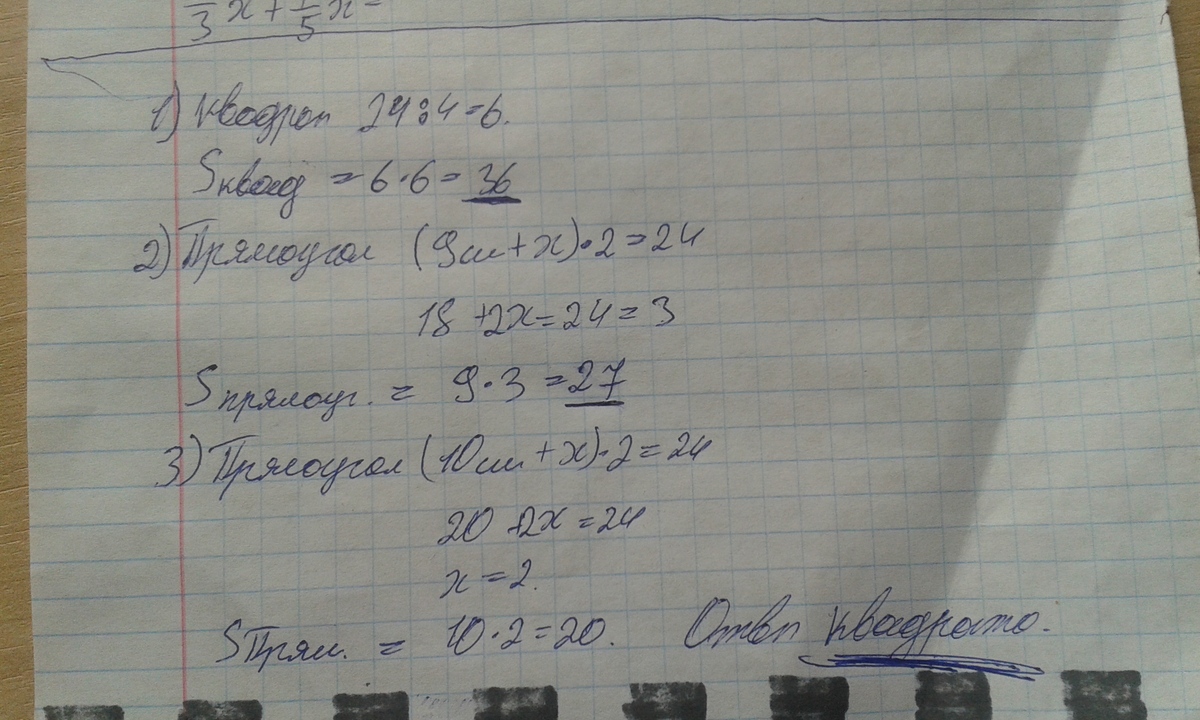 1/3 x + 1/5 x =
1) Квадрат 24:4=6.
Sквад = 6·6=36
2) Прямоугол (9см+x)·2=24
18+2x=24=3
Sпрямоуг. = 9·3=27
3) Прямоугол (10см+x)·2=24
20+2x=24
x=2.
Sпрям. = 10·2=20. Ответ квадрата.